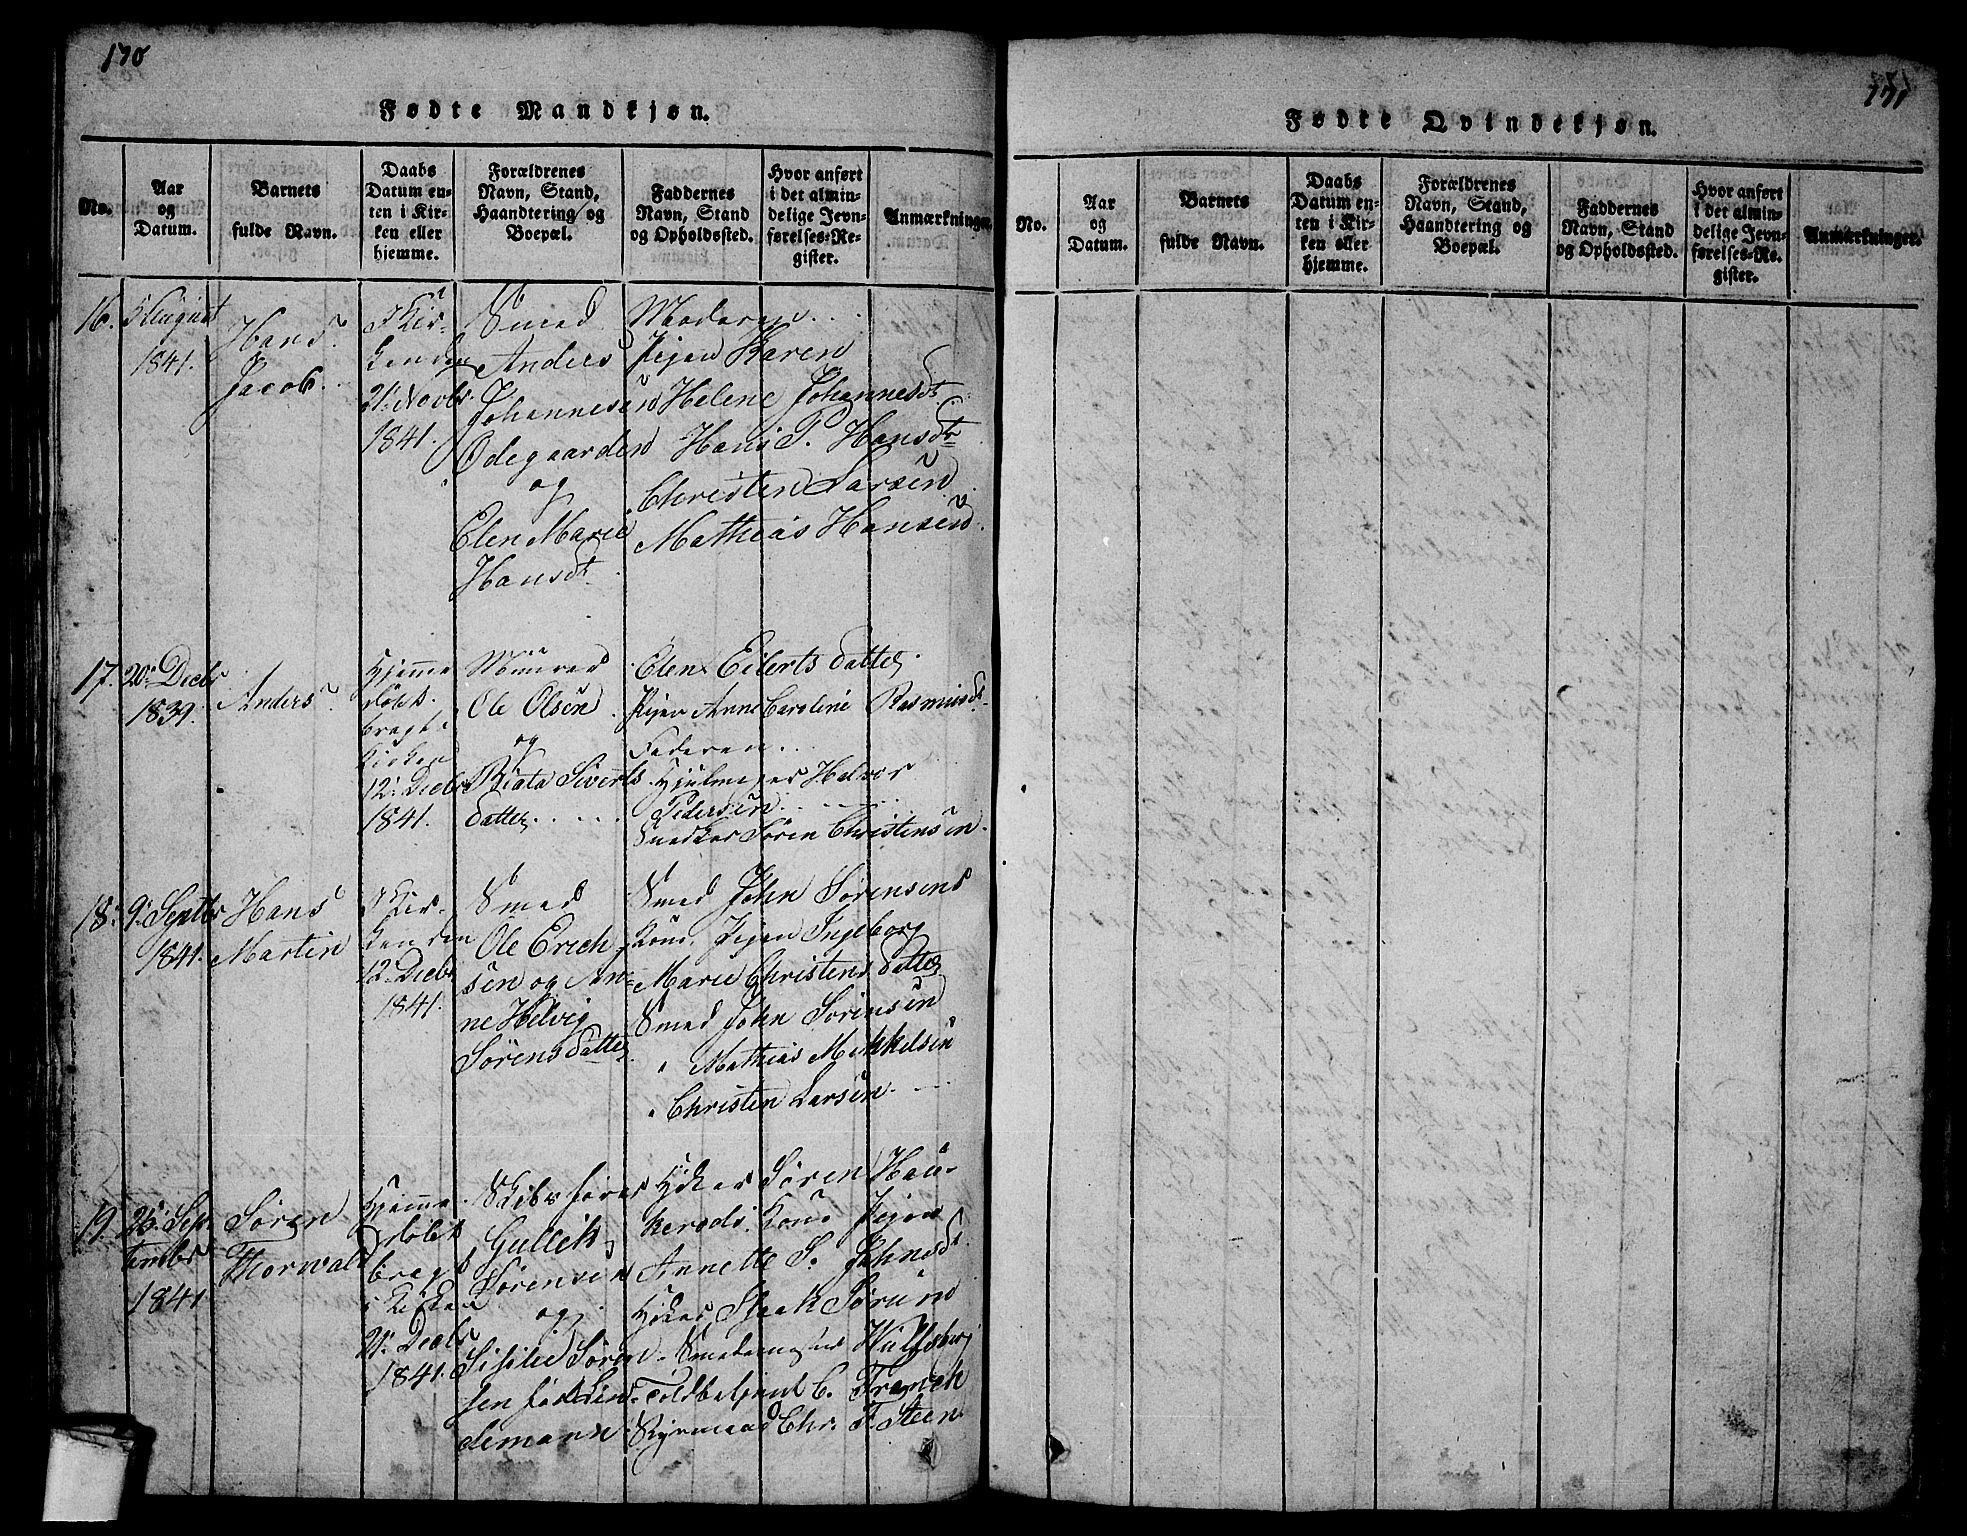 170
Fødte Mandkjøn.
No.
Aar
og
Datum.
Barnets
fulde Navn.
Daabs
Datum en-
ten i Kir-
ken eller
hjemme.
Forældrenes
Navn, Stand,
Haandtering og
Boepæl.
Faddernes
Navn, Stand
og Opholdssted.
Hvor anført
i det almin-
delige Jevn-
førelses-Re-
gister.
Anmærkninger.
16.
5 August
1841.
Hans
Jacob.
I Kir-
ken den
21. Novbr
1841.
Smed
Anders
Johannesen
Ødegaarden
og
Elen Marie
Hansdt.
Moderen...
Pigen Karen
Helene Johannesdt.
Hans P. Hansdtr
Christen Larsen
Mathias Hansen.
17.
20. Decbr
1839.
Anders.
Hjemme
døbt
bragt i
Kirken
12. Decbr
1841.
Muurer
Ole Olsen
og
Beata Siverts
datter....
Elen Eilerts datter.
Pigen Anne Caroline Rasmusdt.
Faderen...
Hjulmager Halvor
Pedersen.....
Snedker Søren Christensen.
18.
9. Septbr
1841.
Hans
Martin
I Kir-
ken den
12. Decbr
1841.
Smed
Ole Erich-
sen og An-
ne Helvig
Sørensdatter
Smed John Sørensens
Kone, Pigen Ingeborg
Marie Christensdatter
Smed John Sørensen
" Mathias Mikkelsen
" Christen Larsen.
19.
25. Sep-
tembr
1841
Søren
Thorwald
Hjemme
døbt
bragt
i Kirken
21. Decbr
1841.
Skibsfører
Gullik
Sørensen
og
Sisilie Søren-
sen født Lin-
demann
Søren Hau-
kerøds Kone Pigen
Annette S. Johnsdt.
Isaak Sørum
Wulfsberg
Toldbetjent C. Franck
Styrmand Chr. F. Steen
171
Fødte Qvindekjøn.
No.
Aar
og
Datum.
Barnets
fulde Navn.
Daabs
Datum en-
ten i Kir-
ken eller
hjemme.
Forældrenes
Navn, Stand,
Haandtering og
Boepæl.
Faddernes
Navn, Stand
og Opholdssted.
Hvor anført
i det almin-
delige Jevn-
førelses-Re-
gister.
Anmærkninger.